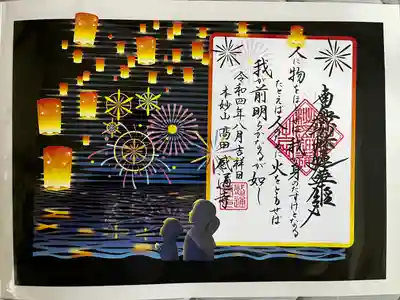 南無妙法蓮華経
人に物をほどこせば我が身のたすけとなる
たとえば人のために火をともせば
我が前明らかなるが如し
令和四年八月吉祥日
本妙山 高田 感通寺